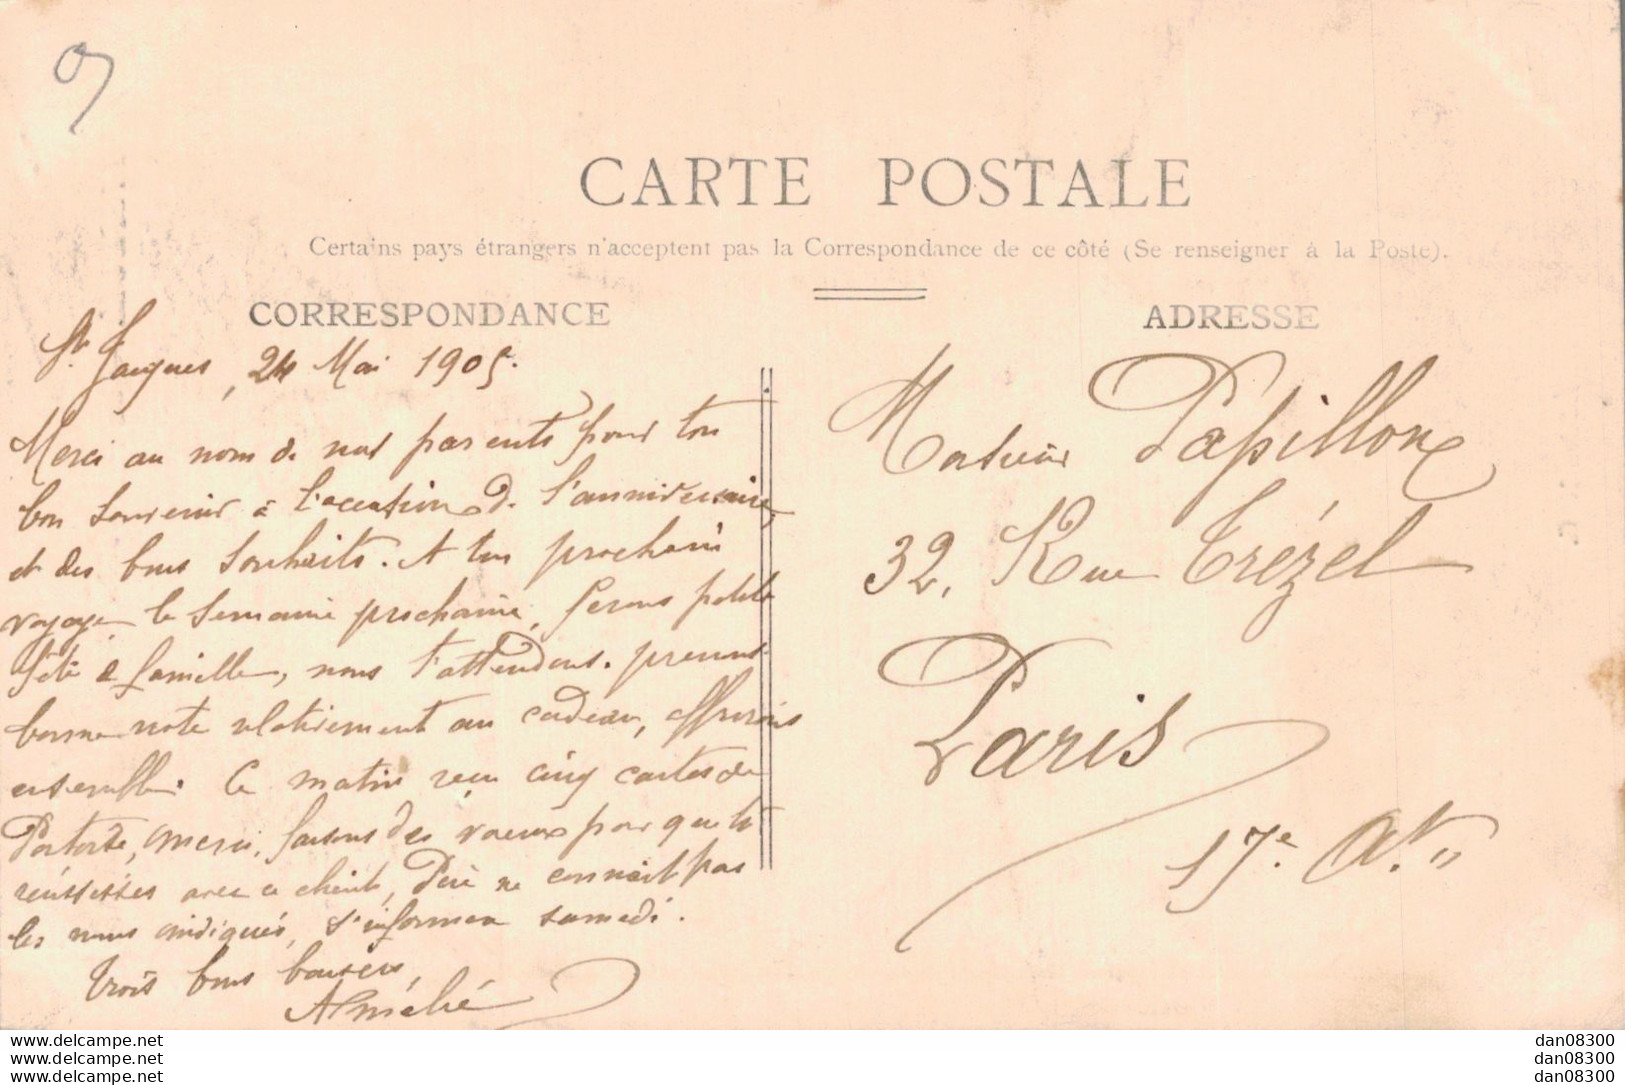 CARTE POSTALE
Certains pays étrangers n'acceptent pas la Correspondance de ce côté (Se renseigner à la Poste).
CORRESPONDANCE
ADRESSE
St Jacques, 24 Mai 1905.
Merci au nom de nos parents pour ton
bon souvenir à l'occasion de l'anniversaire
et des bons souhaits. A ton prochain
voyage la semaine prochaine, ferons petite
fête de famille, nous t'attendons. prenons
bonne note relativement au cadeau, offrirons
ensemble. Ce matin reçu cinq cartes de
merci, faisons des vœux pour que tu
réussisses avec ce client, Père ne connait pas
les noms indiqués, s'informera samedi.
Trois bons baisers,
Monsieur Papillon
32, Rue Trézel
Paris
17e. Art
www.delcampe.net
www.delcampe.net
www.delcampe.net
dan08300
dan08300
dan08300